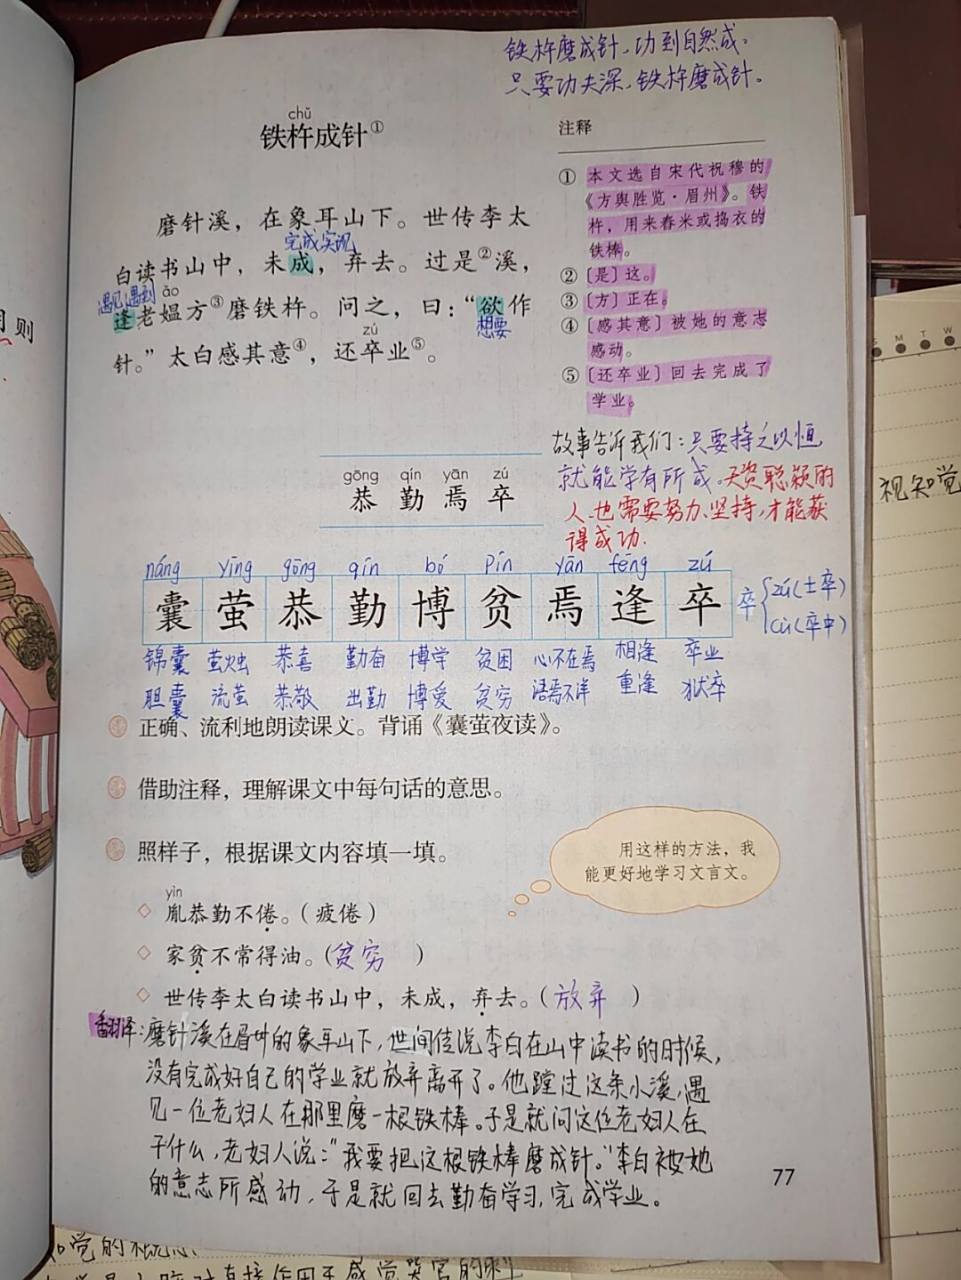 铁杵磨成针，功到自然成。
只要功夫深，铁杵磨成针。
chǔ
铁杵成针①
磨针溪，在象耳山下。世传李太
完成实现
白读书山中，未成，弃去。过是②溪，
遇见，遇到 ǎo
逢老媪方③磨铁杵。问之，曰：“欲作
想要
zú
针。”太白感其意④，还卒业⑤。
注释
① 本文选自宋代祝穆的
《方舆胜览·眉州》。铁
杵，用来舂米或捣衣的
铁棒。
② 〔是〕这。
③ 〔方〕正在。
④ 〔感其意〕被她的意志
感动。
⑤ 〔还卒业〕回去完成了
学业。
故事告诉我们：只要持之以恒
就能学有所成。天资聪颖的
人，也需要努力、坚持，才能获
得成功.
gōng qín yān zú
恭 勤 焉 卒
náng yíng gōng qín bó pín yān féng zú
囊 萤 恭 勤 博 贫 焉 逢 卒
卒 zú(士卒)
cù(卒中)
锦囊 萤烛 恭喜 勤奋 博学 贫困 心不在焉 相逢 卒业
胆囊 流萤 恭敬 出勤 博爱 贫穷 语焉不详 重逢 狱卒
正确、流利地朗读课文。背诵《囊萤夜读》。
借助注释，理解课文中每句话的意思。
照样子，根据课文内容填一填。
用这样的方法，我
能更好地学习文言文。
yìn
◇ 胤恭勤不倦。（疲倦）
◇ 家贫不常得油。（贫穷）
◇ 世传李太白读书山中，未成，弃去。（放弃）
翻译：磨针溪在眉州的象耳山下，世间传说李白在山中读书的时候，
没有完成好自己的学业就放弃离开了。他蹚过这条小溪，遇
见一位老妇人在那里磨一根铁棒。于是就问这位老妇人在
干什么，老妇人说：“我要把这根铁棒磨成针。”李白被她
的意志所感动，于是就回去勤奋学习，完成学业。
77
则
S M T W
视知觉
知觉的概念